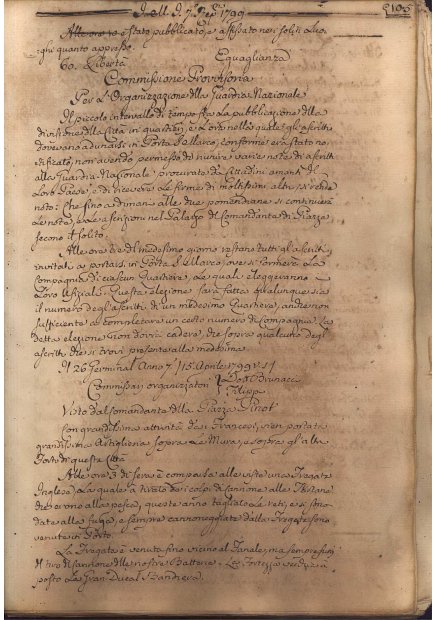 105
Alle ore 10 è stato pubblicato, e affissato nei soliti Luo-
ghi quanto appresso.
60. Libertà Eguaglianza
Commissione Provisoria
Per L'Organizzazione della Guardia Nazionale
Il piccolo intervallo di tempo fra La pubblicazione della
divisione della Città in quartieri, e L'ora nella quale gli ascritti
dovevano adunarsi in Porta S. Marco, conforme era stato no-
tificato, non avendo permesso di riunire varie note di ascritti
alla Guardia Nazionale, procurate da Cittadini amanti del
Loro Paese, e di ricevere Le firme di moltissimi altri, si rende
noto: Che fino a dimani alle due pomeridiane si continuerà
Le note, e Le ascrizioni nel Palazzo del Comandante di Piazza
secondo il solito.
Alle ore tre del medesimo giorno restano tutti gli ascritti
invitati a portarsi in Porta S. Marco, ove si formerà La
Compagnia di ciascun Quartiere, Le quali eleggeranno
Loro Ufiziali. Questa elezione sarà fatta qualunque sia
il numero degli ascritti di un medesimo Quartiere, anche non
sufficiente a completare un certo numero di Compagnia. La
detta elezione non dovrà cadere, che sopra qualcuno degli
ascritti che si trovi presente alla medesima.
Il 26 Germinal Anno 7. (15. Aprile 1799 v. s.)
Commissari organizzatori Brunacci
Filippi
Visto dal Comandante della Piazza Pinot
Con grandissima attività dei Francesi, vien portata
grandissima Artiglieria sopra Le Mura, e sopra gli altri
Forti di questa Città
Alle ore 3 di sera è comparsa alle viste una Fregata
Inglese, La quale à tirato dei colpi di cannone alle
che erono alla pesca, queste anno tagliato Le reti, e si sono
date alla fuga, e sempre cannoneggiate dalla Fregata sono
venute in Porto.
La Fregata è venuta fino vicino al Fanale, ma sempre fuori
il tiro di cannone delle nostre Batterie. La Fortezza
posto La Gran Ducal Bandiera.